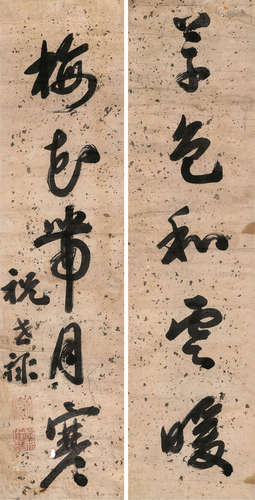 草色和雲暖
梅花帶月寒
祝世祿